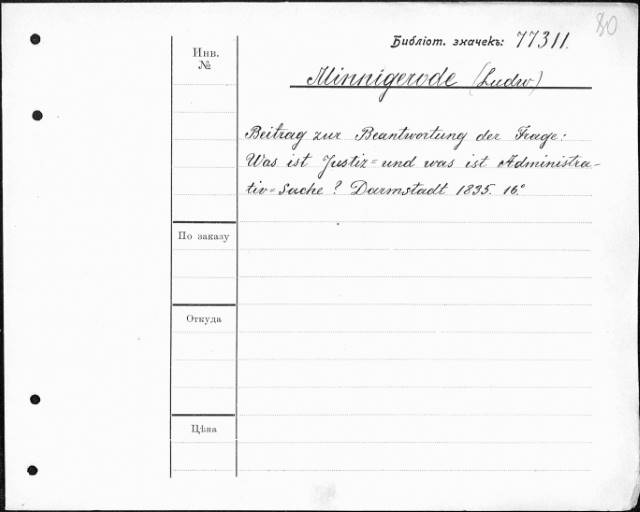 80
Библіот. значекъ: 77311.
Инв.
№
Minnigerode (Ludw)
Beitrag zur Beantwortung der Frage:
Was ist Justiz= und was ist Administra-
tiv=Sache? Darmstadt 1835. 16.°
По заказу
Откуда
Цѣна